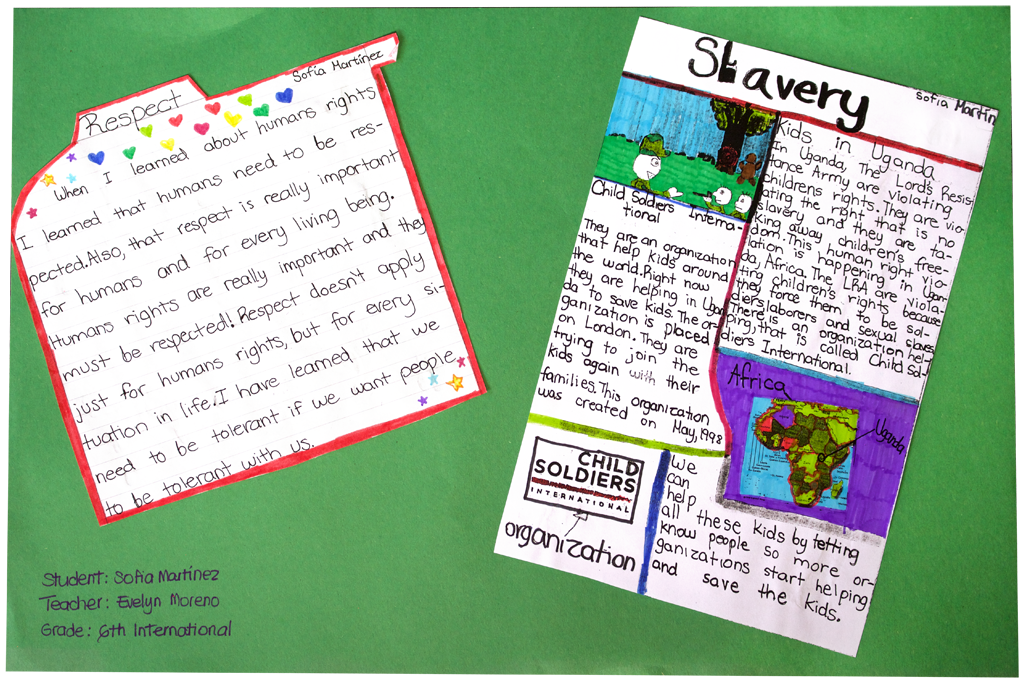 Respect
Sofia Martínez
When I learned about humans rights
I learned that humans need to be res-
pected. Also, that respect is really important
for humans and for every living being.
Humans rights are really important and they
must be respected! Respect doesn't apply
just for humans rights, but for every si-
tuation in life. I have learned that we
need to be tolerant if we want people
to be tolerant with us.
Student: Sofia Martínez
Teacher: Evelyn Moreno
Grade: 6th International
Slavery
Sofia Martín
Child Soldiers Interna-
tional
They are an organization
that help kids around
the world. Right now
they are helping in Ugan
da to save kids. The or-
ganization is placed
on London. They are
trying to join the
kids again with their
families. This organization
was created on May, 1998
Kids in Uganda
In Uganda, The Lord's Resis-
tance Army are violating
childrens rights. They are vio-
ating the right that is no
slavery and they are ta-
king away children's free-
dom. This human right vio-
lation is happening in Ugan-
da, Africa. The LRA are viola-
ting children's rights because
they force them to be sol-
diers, laborers and sexual slaves
There is an organization hel-
ping, that is called Child Sol-
diers International.
Africa
Uganda
CHILD
SOLDIERS
INTERNATIONAL
organization
We
can
help
all these kids by letting
know people so more or-
ganizations start helping
and save the kids.